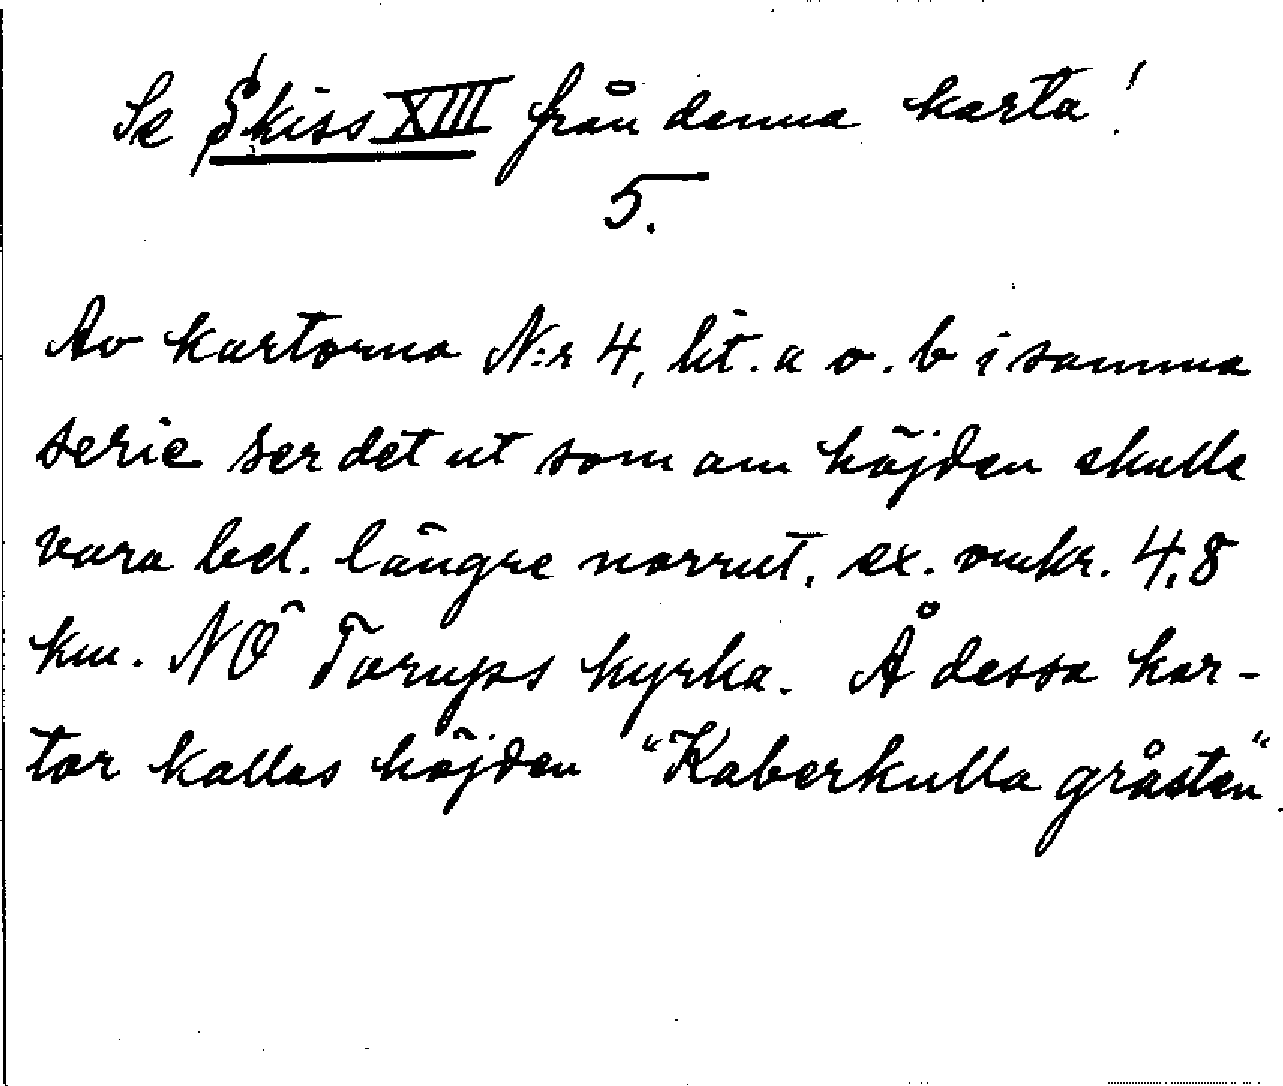 Se Skiss XIII från denna karta!
5.
Av kartorna N:r 4, lit. a o. b i samma
serie ser det ut som om höjden skulle
vara bel. längre norrut, ex. omkr. 4,8
km. NÖ Torups kyrka. Å dessa kar-
tor kallas höjden "Kaberkulla gråsten".